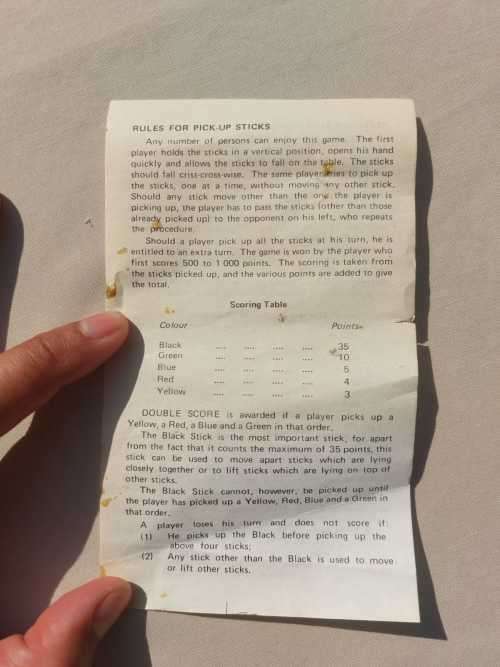 RULES FOR PICK-UP STICKS
Any number of persons can enjoy this game. The first
player holds the sticks in a vertical position, opens his hand
quickly and allows the sticks to fall on the table. The sticks
should fall criss-cross-wise. The same player tries to pick up
the sticks, one at a time, without moving any other stick.
Should any stick move other than the one the player is
picking up, the player has to pass the sticks (other than those
already picked up) to the opponent on his left, who repeats
the procedure.
Should a player pick up all the sticks at his turn, he is
entitled to an extra turn. The game is won by the player who
first scores 500 to 1 000 points. The scoring is taken from
the sticks picked up, and the various points are added to give
the total.
Scoring Table
Colour Points
Black .... .... .... .... 35
Green .... .... .... .... 10
Blue .... .... .... .... 5
Red .... .... .... .... 4
Yellow .... .... .... .... 3
DOUBLE SCORE is awarded if a player picks up a
Yellow, a Red, a Blue and a Green in that order.
The Black Stick is the most important stick, for apart
from the fact that it counts the maximum of 35 points, this
stick can be used to move apart sticks which are lying
closely together or to lift sticks which are lying on top of
other sticks.
The Black Stick cannot, however, be picked up until
the player has picked up a Yellow, Red, Blue and a Green in
that order.
A player loses his turn and does not score if:
(1) He picks up the Black before picking up the
above four sticks;
(2) Any stick other than the Black is used to move
or lift other sticks.